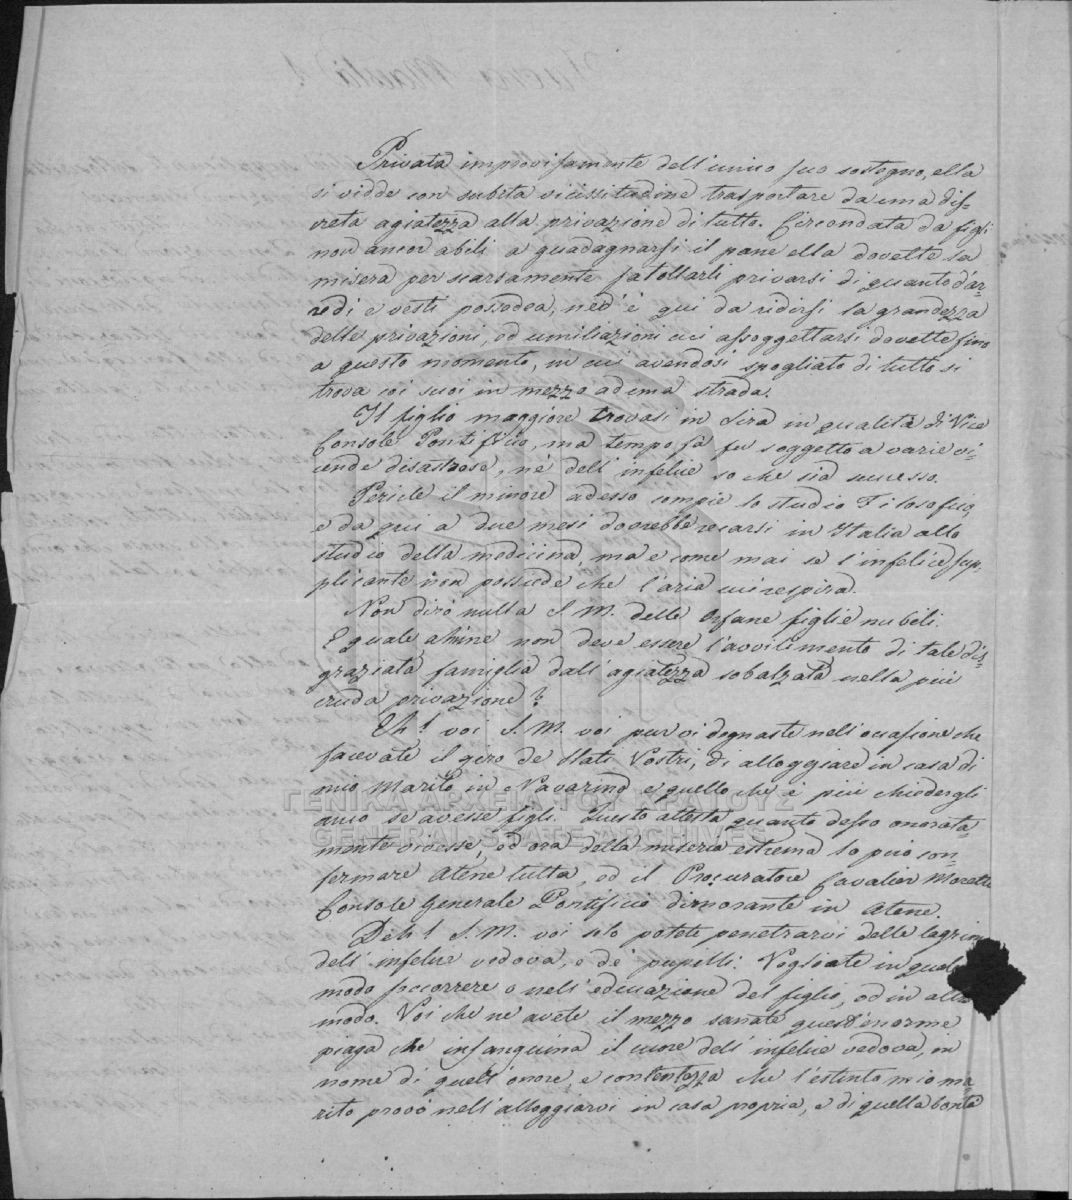 Privata improvisamente dell'unico suo sostegno, ella
si vidde con subita vicissitudine trasportare da una dis-
creta agiatezza alla privazione di tutto. Circondata da figli
non ancor abili a guadagnarsi il pane ella dovette la
misera per scarsamente satollarli privarsi di quanto d'ar-
redi e vesti possedea, ned'è qui da ridirsi la grandezza
delle privazioni, od umiliazioni cui assoggettarsi dovette fino
a questo momento, in cui avendosi spogliato di tutto si
trova coi suoi in mezzo ad una strada.
Il figlio maggiore trovasi in Sira in qualità di Vice
Console Pontificio, ma tempo fà fu soggetto a varie vi-
cende disastrose, nè dell'infelice so che sia successo.
Pericle il minore adesso compie lo studio Filosofico,
e da qui a due mesi dovrebbe recarsi in Italia allo
studio della medicina, ma e come mai se l'infelice sup-
plicante non possiede che l'aria cui respira.
Non dirò nulla S. M. delle Orfane figlie nubili.
E quale ahine non deve essere l'avvilimento di tale dis-
graziata famiglia dall'agiatezza sobalzata nella più
cruda privazione?
Eh! voi S. M. voi pur vi degnaste nell'occasione che
facevate il giro de Stati Vostri, di alloggiare in casa di
mio Marito in Navarino e quello che è più chiedergli
anco se avesse figli. Questo attesta quanto desso onorata-
mente vivesse, od ora della miseria estrema lo può con-
fermare Atene tutta, od il Procuratore Cavalier Moretti
Console Generale Pontificio dimorante in Atene.
Deh! S. M. voi solo potete penetrarvi delle lagrime
dell'infelice vedova, e de' pupilli. Vogliate in qual
modo soccorrere o nell'educazione del figlio, od in altro
modo. Voi che ne avete il mezzo sanate quest'enorme
piaga che insanguina il cuore dell'infelice vedova, in
nome di quell'onore, e contentezza che l'estinto mio ma
rito provò nell'alloggiarvi in casa propria, e di quella bontà
ΓΕΝΙΚΑ ΑΡΧΕΙΑ ΤΟΥ ΚΡΑΤΟΥΣ
GENERAL STATE ARCHIVES